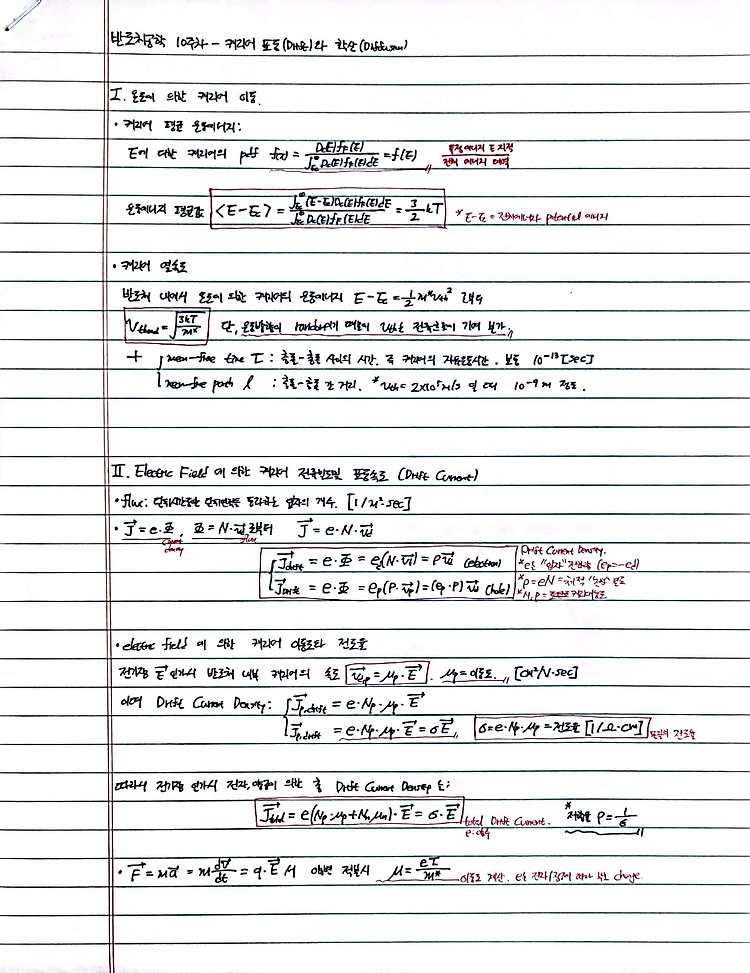 반도체공학 10주차 - 캐리어 표동(Drift)와 확산(Diffusion)
I. 온도에 의한 캐리어 이동.
• 캐리어 평균 운동에너지:
E에 대한 캐리어의 pdf f(x) = Dc(E)fF(E) / ∫Ec^∞ Dc(E)fF(E)dE = f(E) 특정에너지 E 지점 / 전체 에너지 대역
운동에너지 평균값 <E-Ec> = ∫Ec^∞ (E-Ec)Dc(E)fF(E)dE / ∫Ec^∞ Dc(E)fF(E)dE = 3/2 kT * E-Ec = 전자에너지 potential 에너지
• 캐리어 열속도
반도체 내에서 온도에 의한 캐리어의 운동에너지 E-Ec = 1/2 m* vth²
Vthermal = √(3kT/m*) 단, 운동방향이 random하기 때문에 vth는 전류흐름에 기여 불가.
+ { mean-free time τ : 충돌-충돌 사이의 시간. 즉 캐리어의 자유운동시간. 보통 10⁻¹³ [sec]
mean-free path l : 충돌-충돌 간 거리. * vth = 2×10⁵ m/s 일 때 10⁻⁹ m 정도.
II. Electric Field에 의한 캐리어 전류밀도및 표동속도 (Drift Current)
• flux: 단위시간동안 단위면적을 통과하는 입자의 개수. [1/m² sec]
• J = e·Φ, Φ = N·v로부터 J = e·N·v
Current density flux
{ Jdrift = e·Φ = e(N·v) = ρv (electron) Drift Current Density.
* e는 "입자" 전하량 (ep=-ed)
Jdrift = e·Φ = ep(P·vp) = (ep·P)v (hole) * ρ = eN =
* N, P =
• electric field에 의한 캐리어 이동도와 전도율
전기장 E 인가시 반도체 내부 캐리어의 속도 vp = μp·E. μp = 이동도. [cm²/V·sec]
이때 Drift Current Density: { Jp,drift = e·Np·μp·E
Jp,drift = e·Np·μp·E = σE, σ = e·Np·μp = 전도율 [1/Ω·cm]
따라서 전기장 인가시 전자, 정공에 의한 총 Drift Current Density는:
Jtotal = e(Np·μp+Nn,μn)·E = σ·E total Drift Current. * 저항율 ρ = 1/σ
• F = ma = m dv/dt = q·E 서 양변 적분시 μ = eτ/m* 이동도 계산. e는 전자/정공에 따라 부호 change